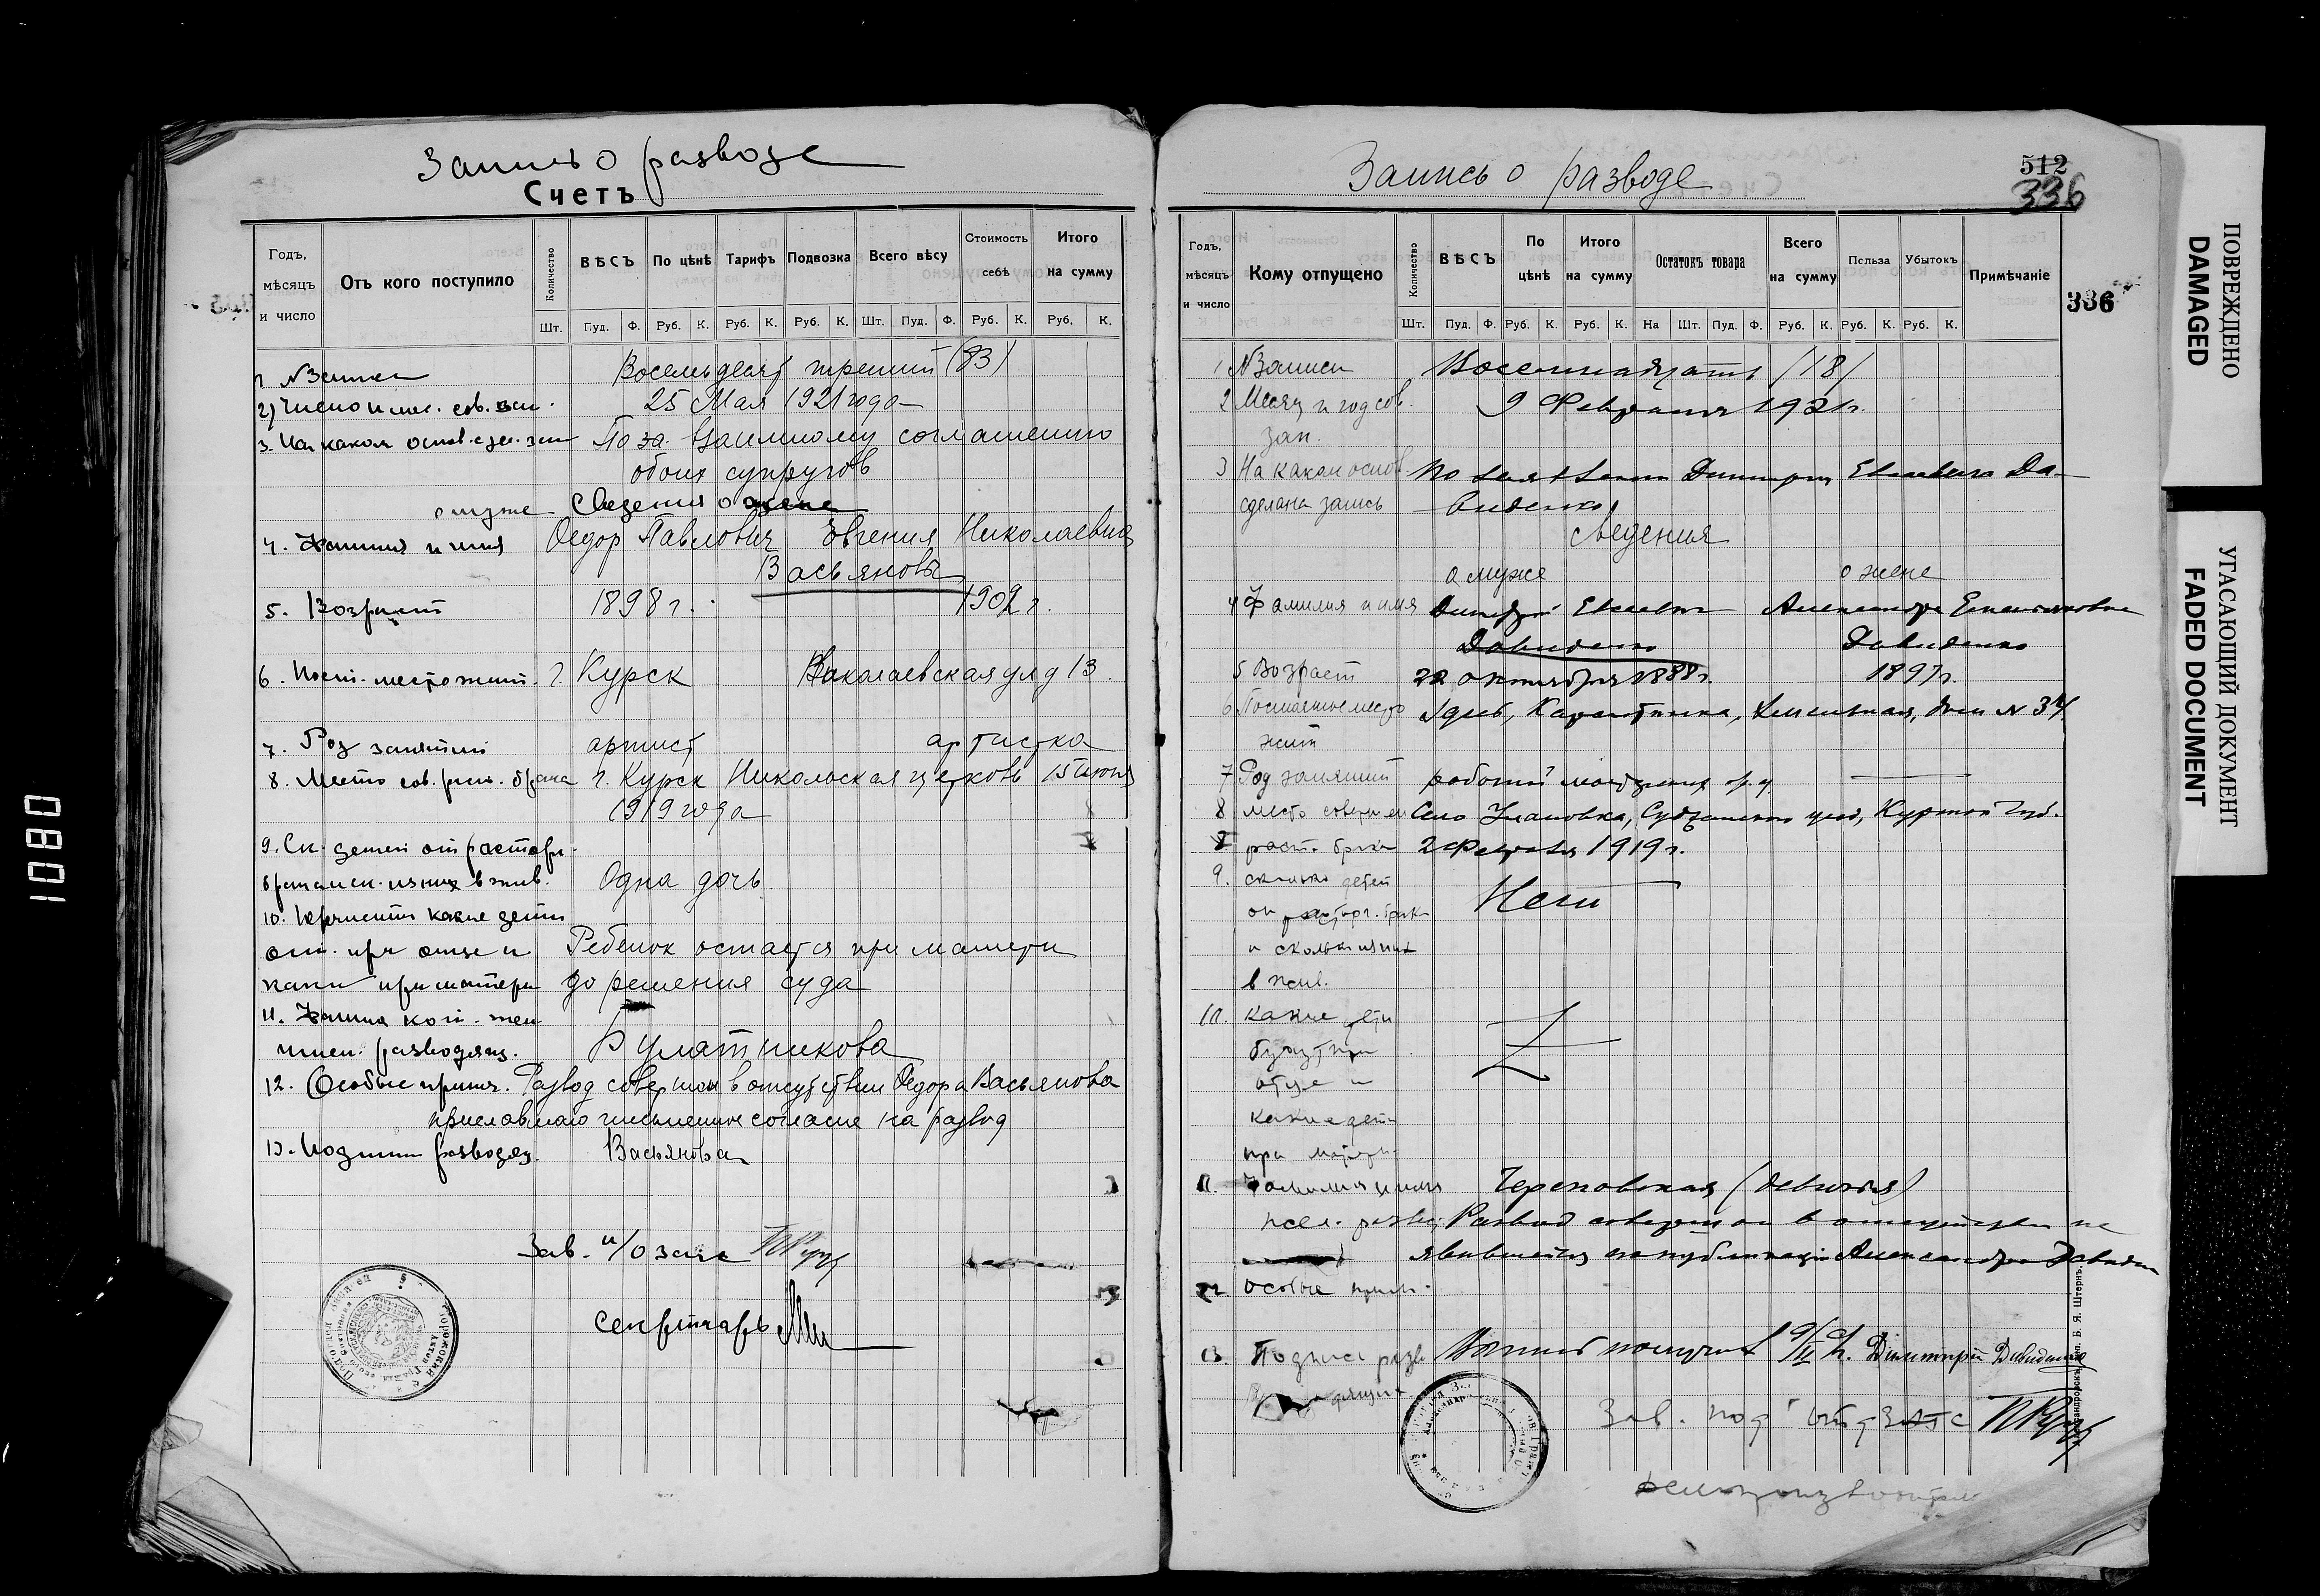 Запись о разводе
Счетъ
Годъ, мѣсяцъ и число
Отъ кого поступило
Количество
ВѢСЪ
По цѣнѣ
Тарифъ
Подвозка
Всего вѣсу
Стоимость себѣ
Итого на сумму
Шт. Пуд. Ф. Руб. К. Руб. К. Руб. К. Шт. Пуд. Ф. Руб. К. Руб. К.
1 № Записи Восемьдесят третий (83)
2) Число и мес. сов. зап. 25 Мая 1921 года
3. На каком основ. сдел. зап. По за. взаимному соглашению
обоих супругов
о муже Сведения о жене
4. Фамилия и имя Федор Павлович Евгения Николаевна
Васьяновы
5. Возраст 1898 г. 1902 г.
6. Пост. место жит. г. Курск Николаевская ул д 13
7. Род занятий артист артистка
8. Место сов. раст. брака г. Курск Никольская церковь 15 июня
1919 года
9. Ск. детей от расторг.
брака и ск. из них в жив. Одна дочь.
10. какие дети
ост. при отце и Ребенок остается при матери
какие при матери до решения суда
11. Фамилия
разводящ. Булатникова
12. Особые примеч. Развод совершен в отсутствии Федора Васьянова
приславшаго письменное согласие на развод
13. Подписи разводящ. Васьянова
Зав. п/о загс
Секретарь
Запись о разводе
512
336
Годъ, мѣсяцъ и число
Кому отпущено
Количество
ВѢСЪ
По цѣнѣ
Итого на сумму
Остатокъ товара
Всего на сумму
Польза
Убытокъ
Примѣчаніе
336
Шт. Пуд. Ф. Руб. К. Руб. К. На Шт. Пуд. Ф. Руб. К. Руб. К. Руб. К.
1 № Записи Восемнадцать /18/
2 Месяц и год сов. 9 Февраля 1921 г.
зап.
3 На каком основ. По заявлению Димитрия Евсеевича Да-
сделана запись виденко
Сведения
о муже о жене
4 Фамилия и имя Димитрий Евсеевич Александра Емельяновна
Давиденко Давиденко
5 Возраст 22 октября 1888 г. 1897 г.
6 Постоянное место дом № 34.
жит
7 Род занятий рабочий
8 место совершен Село Улановка, Суджанского уезд, Курской Губ.
8 раст. брака 2 Февраля 1919 г.
9. сколько детей
от расторг. брака Нет
и сколько из них
в жив.
10. какие дети
будут при
отце и
какие дети
при матери
11. Фамилия и имя Череповская (девичья)
жел. развод. Развод совершен в отсутствии не
явившейся по публикации Александры Давиден
12. Особые прим.
13. Подпись разво Димитрий Давиденко
дящихся
Зав. под'отд ЗАГС
делопроизводитель
Б. Я. Штернъ.
1080
ПОВРЕЖДЕНО
DAMAGED
УГАСАЮЩИЙ ДОКУМЕНТ
FADED DOCUMENT